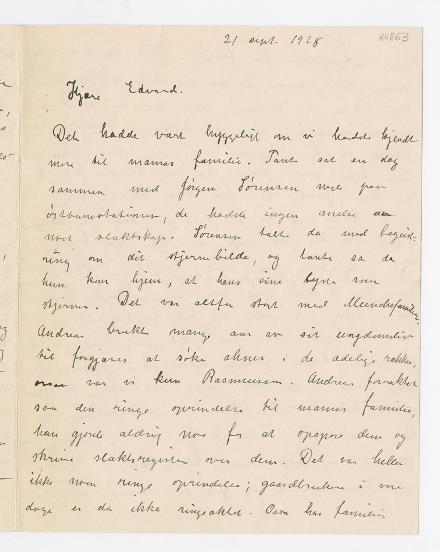 21 sept 1928
K4863
Kjære Edvard.
Det hadde vært hyggeligt om vi hadde kjendt
mere til mamas familie. Tante sat en dag
sammen med Jørgen Sørensen paa
østbanestationen, de hadde ingen anelse
noet slektskap. Sørensen talte da med begeist-
ring om dit stjernebilde, og tante sa da
hun kom hjem, at hans øine lyste som
stjerner. Det var altfor stort med Munchefamilien,
Andreas brukte mange aar av sit ungdomsliv
til forgjæves at søke ahner i de adelige rækker,
var vi kun Rasmussen. Andreas foraktet
saa den ringe oprindelse til mamas familie,
han gjorde aldrig noe for at opspore dem og
skrive slektsregister over dem. Det var heller
ikke noen ringe oprindelse; gaardbruken i vore
dage er da ikke ringeaktet. Osea har familie